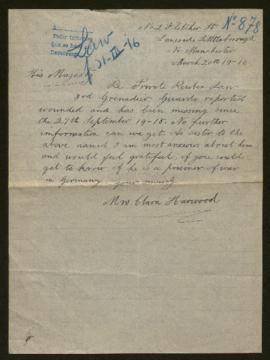 No 2 Fletcher St
Nº 878
Lanside Littleborough
Nr Manchester
March 20th 19-16
21-III-16
His Majes
Re Private Reuben
Grenadier Guards reported
wounded and has been missing since
the 27th September 19-15. No further
information can we get. As sister to the
above named I am most anxious about him
and would feel grateful if you could
get to know if he is a prisoner of war
in Germany yours truly
Mrs Clara Harwood